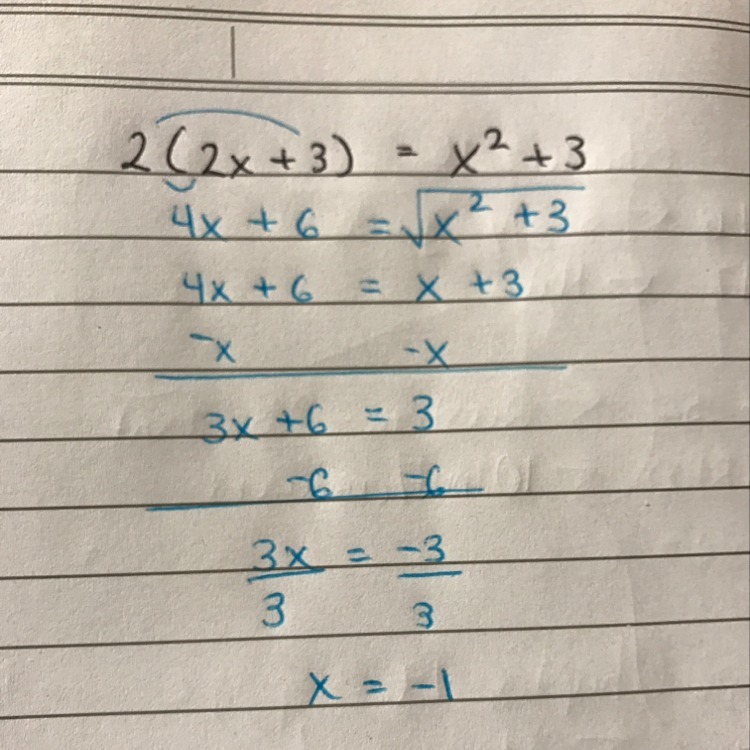 2(2x + 3) = x² + 3
4x + 6 = √(x² + 3)
4x + 6 = x + 3
-x -x
3x + 6 = 3
-6 -6
3x = -3
3 3
x = -1